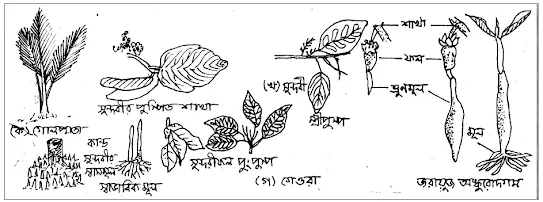 (ক) গোলপাতা
সুন্দরীর পুষ্পিত শাখা
কান্ড
সুন্দরীর
শ্বাসমূল
স্বাভাবিক মূল
সুন্দরীফল
পুংপুষ্প
(খ) সুন্দরী
স্ত্রীপুষ্প
(গ) গেওয়া
শাখা
ফল
ভ্রূনমূল
মূল
জরায়ুজ অঙ্কুরোদগম